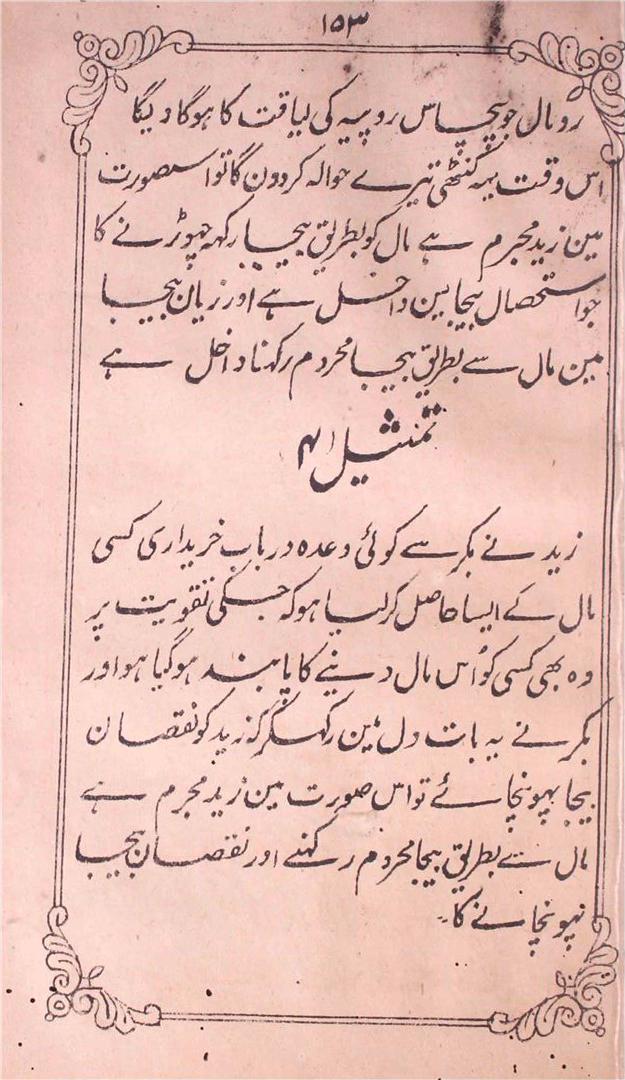 ۱۵۳
رومال جو پچاس روپیہ کی لیاقت کا ہوگا دیگا
اس وقت یہہ گنٹھی تیرے حوالہ کردون گا تو اسصورت
مین زید مجرم ہے مال کو بطریق بیجا رکھہ چھوڑنے کا
جو استحصال بیجا مین داخل ہے اور زیان بیجا
مین مال سے بطریق بیجا محروم رکھنا داخل ہے
تمثیل
زید نے بکر سے کوئی وعدہ در باب خریداری کسی
مال کے ایسا حاصل کرلیا ہو کہ جسکی تقویت پر
وہ بھی کسی کو اُس مال دینے کا پابند ہوگیا ہو اور
بکر نے یہ بات دل مین رکھکر کہ زید کو نقصان
بیجا پہونچائے تو اس صورت مین زید مجرم ہے
مال سے بطریق بیجا محروم رکھنے اور نقصان بیجا
پہونچانے کا۔